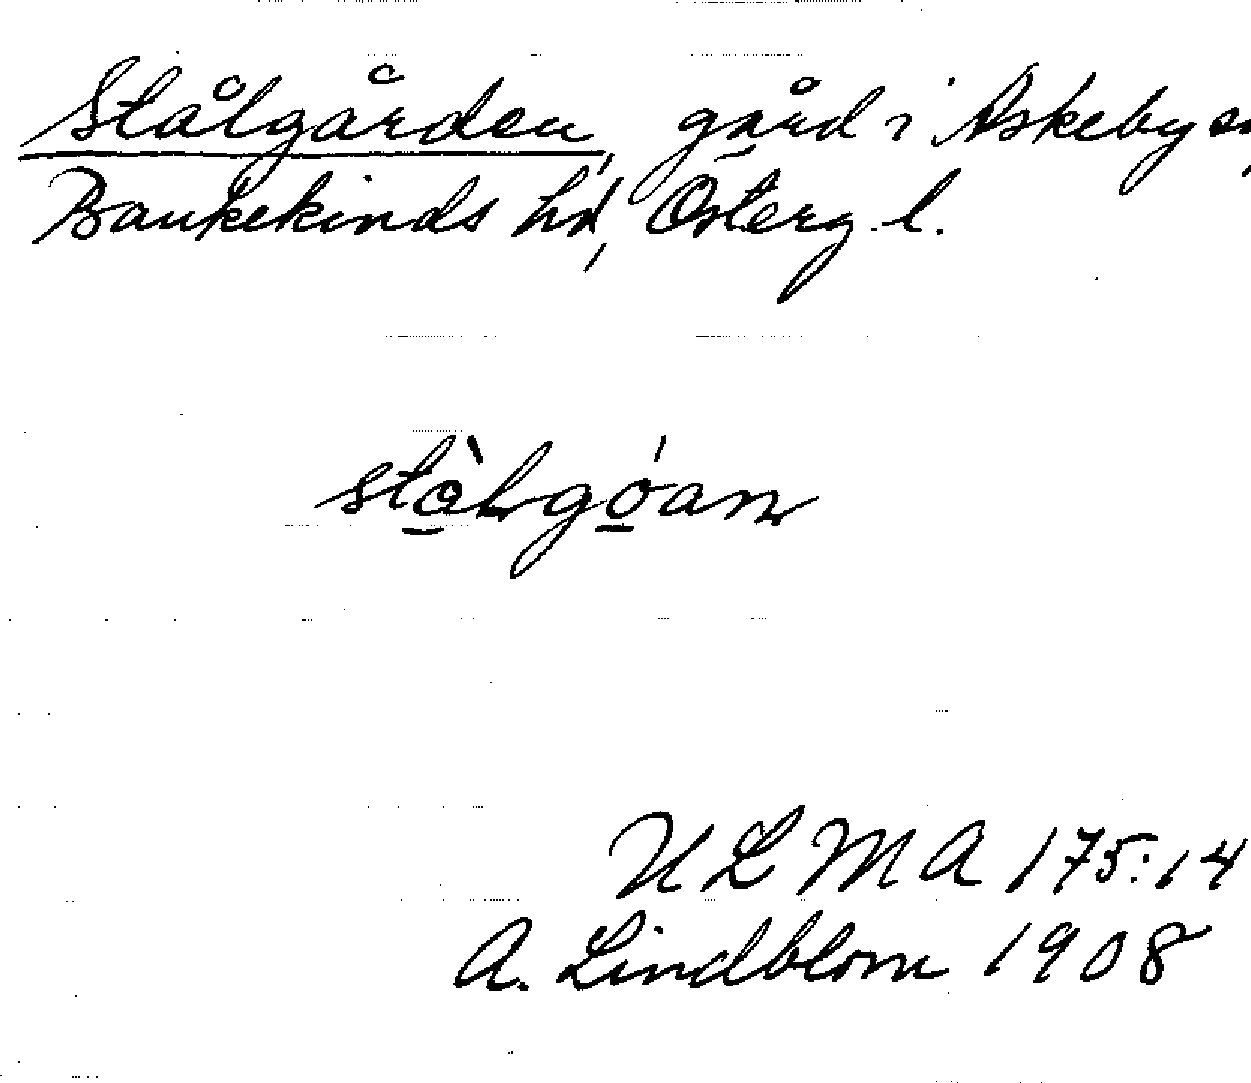 Stålgården, gård i Askeby sn,
Bankekinds hd, Österg. l.
stò̲lgó̲an
ULMA 175:14
A. Lindblom 1908